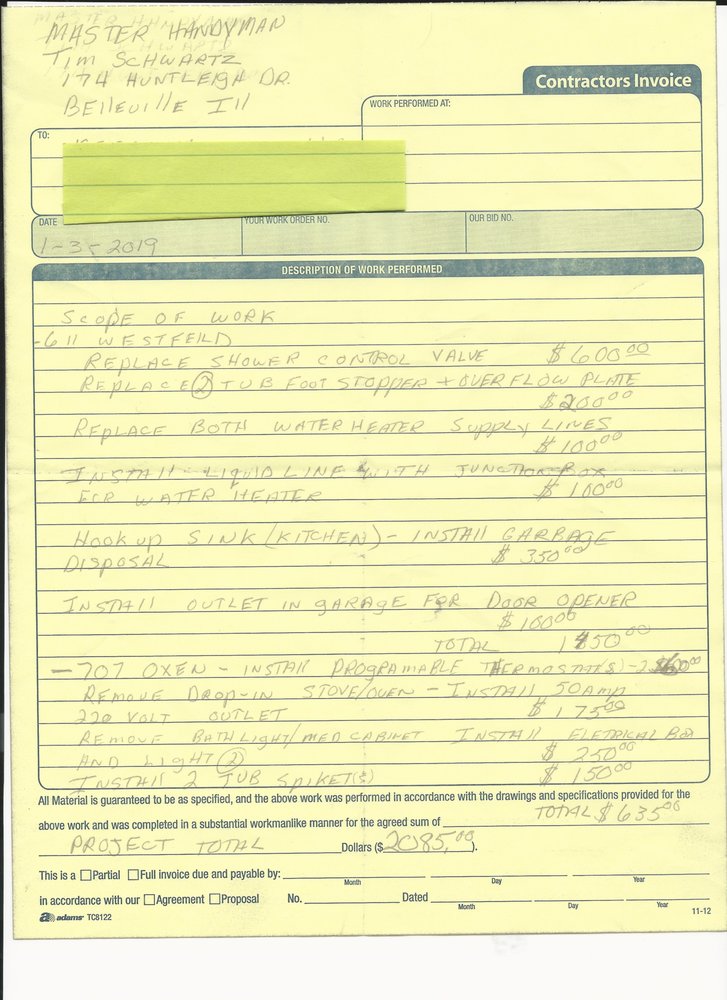 MASTER HANDYMAN
TIM SCHWARTZ
174 HUNTLEIGH DR.
BELLEVILLE Ill
Contractors Invoice
WORK PERFORMED AT:
TO:
DATE
YOUR WORK ORDER NO.
OUR BID NO.
1-3-2019
DESCRIPTION OF WORK PERFORMED
SCOPE OF WORK
-611 WESTFEILD
REPLACE SHOWER CONTROL VALVE $600.00
REPLACE 2 TUB FOOT STOPPER + OVERFLOW PLATE
$200.00
REPLACE BOTH WATER HEATER Supply LINES
$100.00
INSTAll LIQUID LINE WITH JUNCTION BOX
FOR WATER HEATER $100.00
Hook up SINK (KITCHEN) - INSTAll GARBAGE
DISPOSAL $350.00
INSTAll OUTLET IN GARAGE FOR DOOR OPENER
$100.00
TOTAL 1450.00
-707 OXEN - INSTAll PROGRAMABLE THERMOSTAT(S) -
REMOVE DROP-IN STOVE/OVEN - INSTAll 50Amp
220 VOLT OUTLET $175.00
REMOVE BATH LIGHT/MED CABINET INSTAll ELETRICAL BOX
AND LIGHT 2 $250.00
INSTAll 2 TUB SPIKET(S) $150.00
All Material is guaranteed to be as specified, and the above work was performed in accordance with the drawings and specifications provided for the
above work and was completed in a substantial workmanlike manner for the agreed sum of TOTAL $635.00
PROJECT TOTAL Dollars ($2085.00).
This is a Partial Full invoice due and payable by:
Month Day Year
in accordance with our Agreement Proposal No. Dated
Month Day Year
adams TC8122
11-12